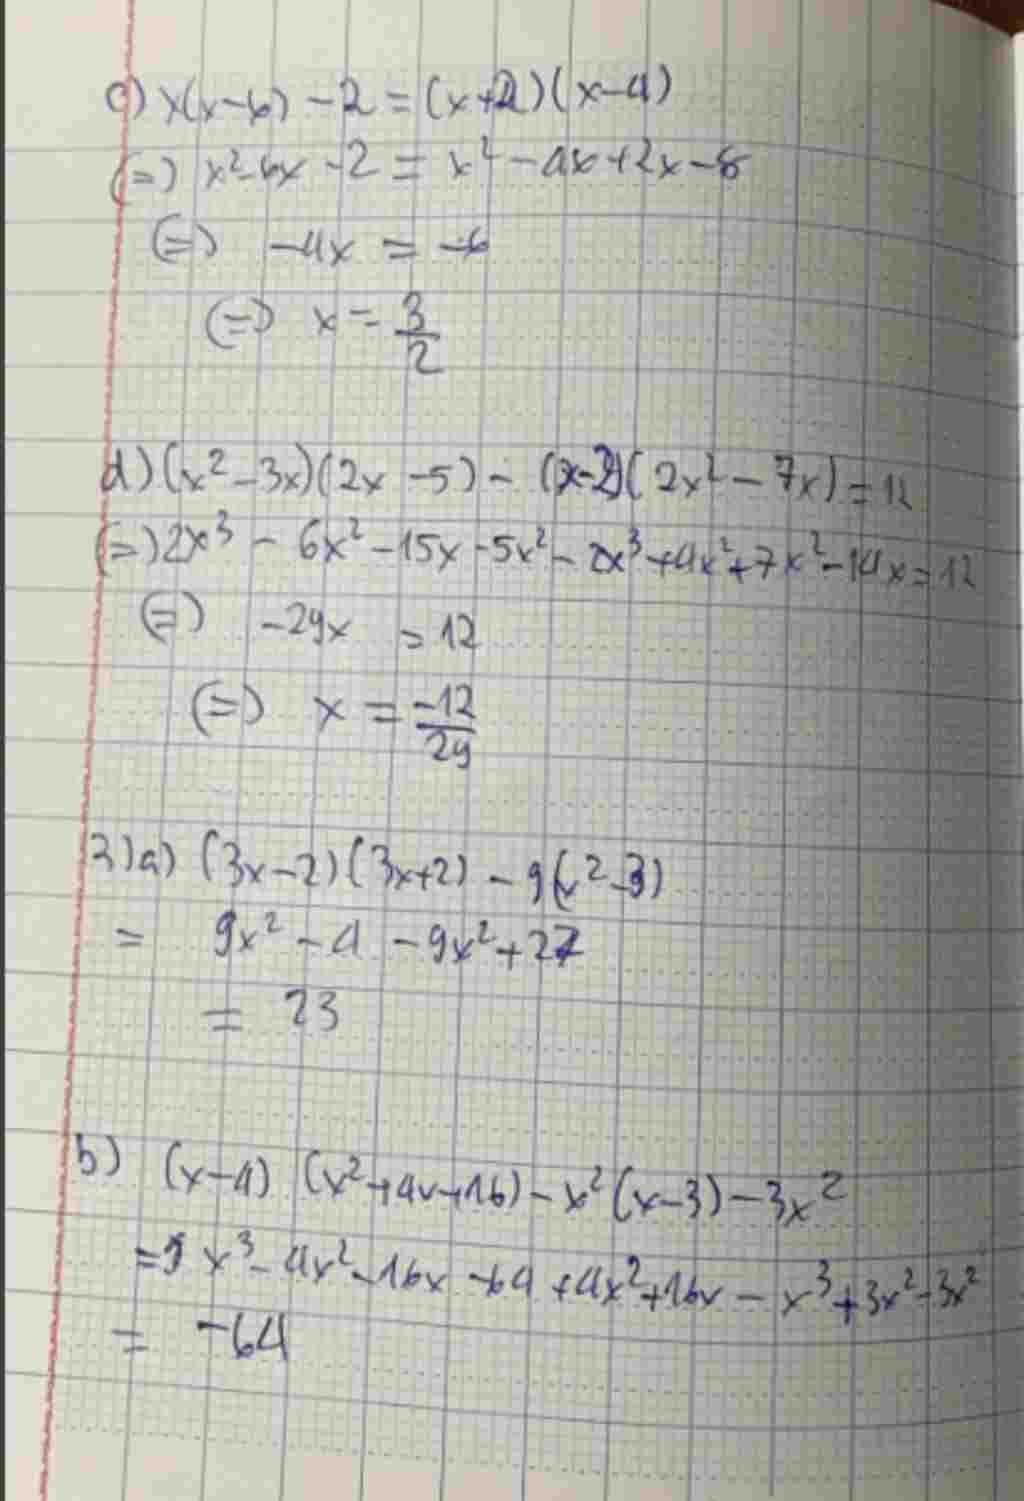 c) x(x-6) - 2 = (x+2)(x-4)
(=) x² - 6x - 2 = x² - 4x + 2x - 8
(=) -4x = -6
(=) x = 3/2
d) (x² - 3x)(2x - 5) - (x-2)(2x² - 7x) = 12
(=) 2x³ - 6x² - 15x - 5x² - 2x³ + 4x² + 7x² - 14x = 12
(=) -29x = 12
(=) x = -12/29
3) a) (3x-2)(3x+2) - 9(x² - 3)
= 9x² - 4 - 9x² + 27
= 23
b) (x-4) (x² + 4x + 16) - x² (x-3) - 3x²
= x³ - 4x² - 16x - 64 + 4x² + 16x - x³ + 3x² - 3x²
= -64